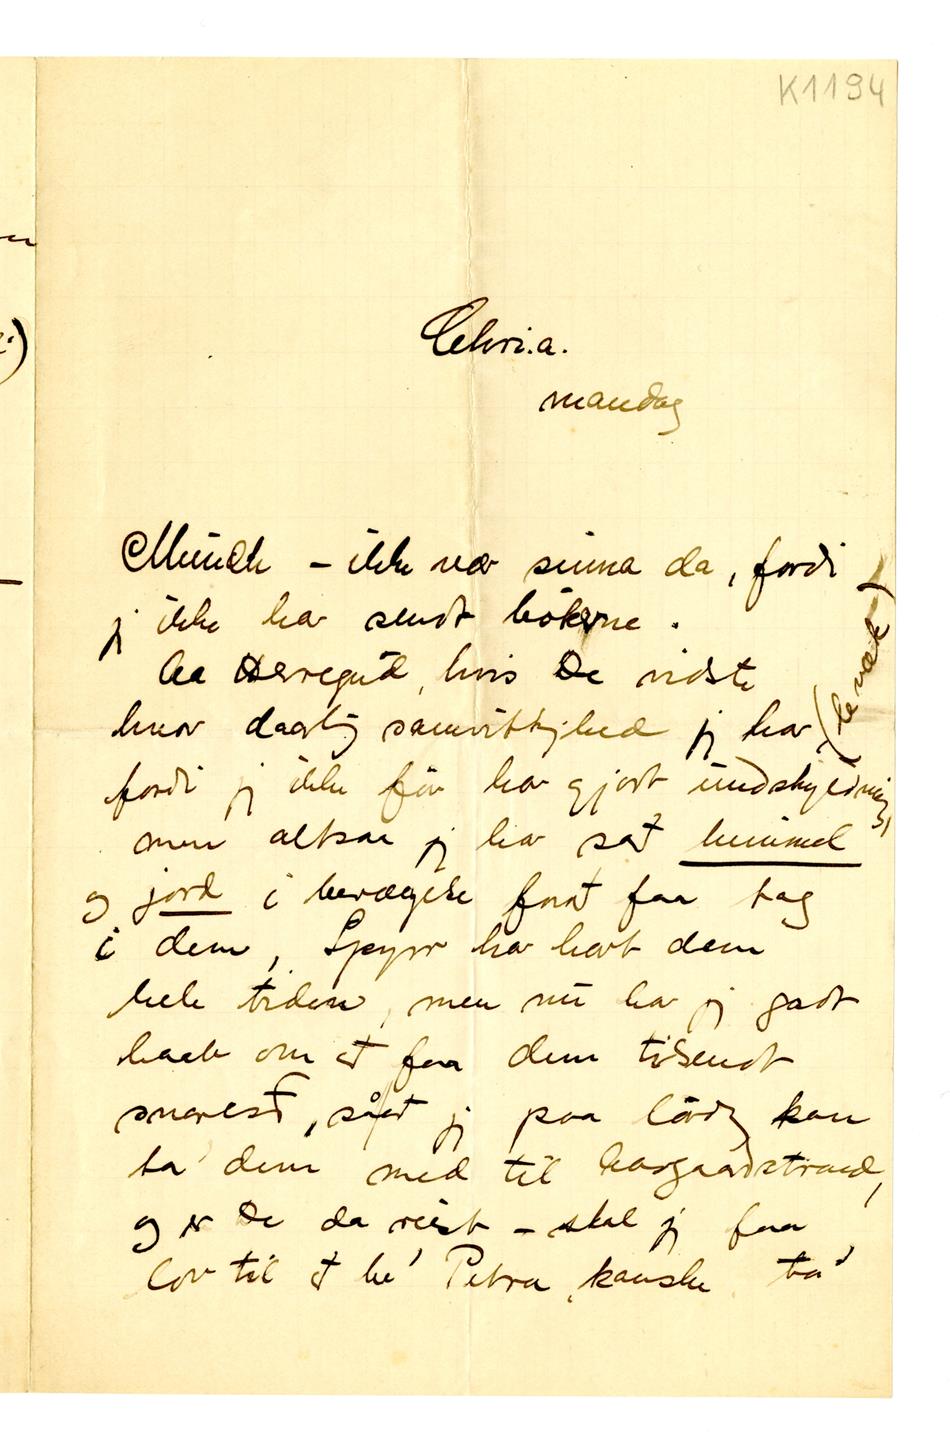 K1194
Chri.a.
mandag
Munch – ikke vær sinna da, fordi
jg ikke har sendt bökerne.
Aa Herregud, hvis De vidste
hvor daarlig samvittighed jg har,
fordi jg ikke för har gjort undskyldning,
men altsaa jg har sat himmel
og jord i bevægelse forat faa tag
i dem, har havt dem
hele tiden, men nu har jg godt
haab om at faa dem tilsendt
snarest, såat jg paa lördg kan
ta' dem med til Aasgaardstrand,
og er De da reist – skal jg faa
lov til at be' Petra, kanske ta'